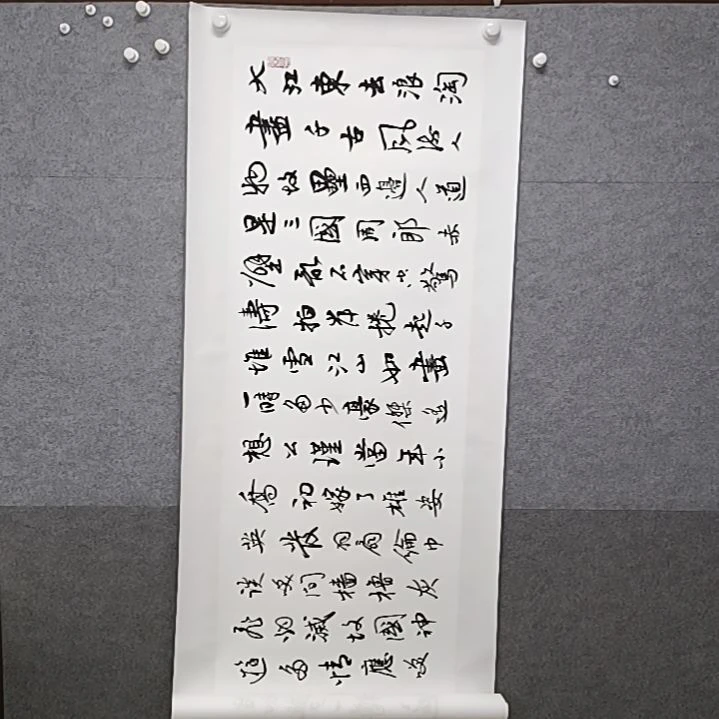 大江東去浪淘
盡千古風流人
物故壘西邊人道
是三國周郎赤
壁亂石穿空驚
濤拍岸捲起千
堆雪江山如畫
一時多少豪傑遙
想公瑾當年小
喬初嫁了雄姿
英發羽扇綸巾
談笑間檣櫓灰
飛烟滅故國神
遊多情應笑